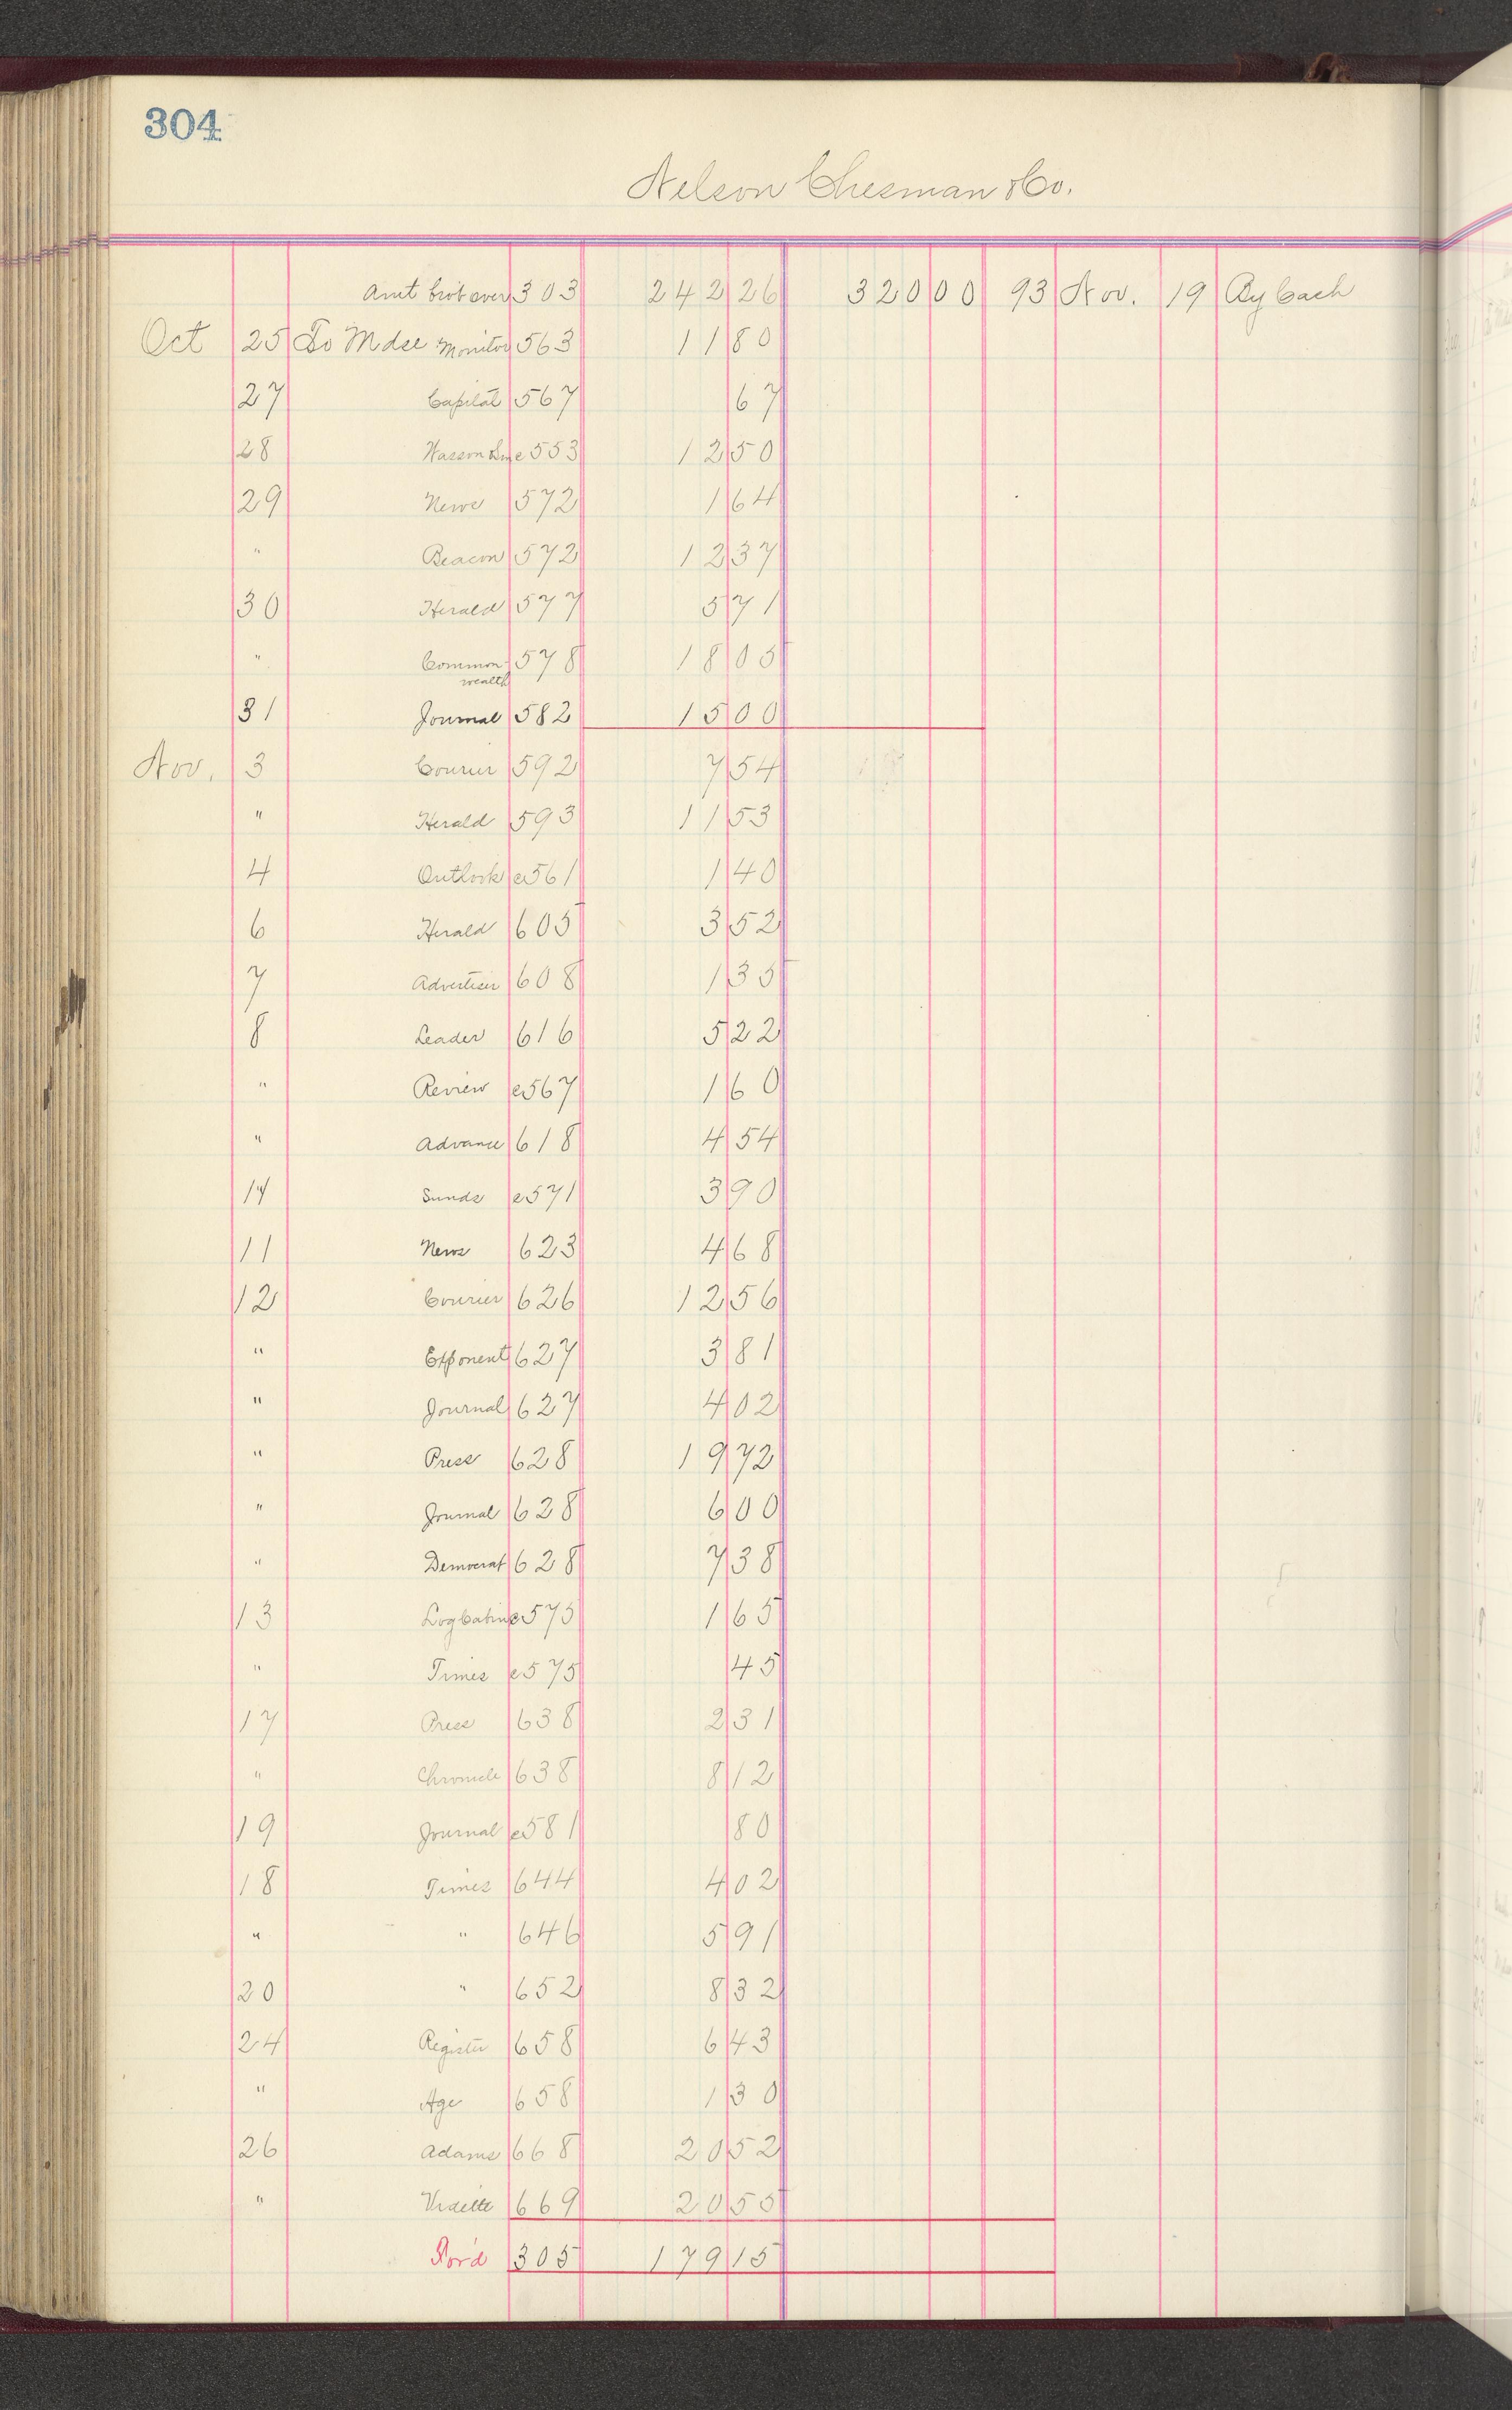 304
Nelson Chesman & Co.
Amt brot over 303 242 26 320 00 93 Nov. 19 By Cash
Oct 25 To Mdse Monitor 563 11 80
27 Capital 567 67
28 Wasson & Son e553 12 50
29 News 572 1 64
" Beacon 572 12 37
30 Herald 577 5 71
" Common- 578 18 05
wealth
31 Journal 582 15 00
Nov. 3 Courier 592 7 54
" Herald 593 11 53
4 Outlook e561 1 40
6 Herald 605 3 52
7 Advertiser 608 1 35
8 Leader 616 5 22
" Review e567 1 60
" Advance 618 4 54
14 Sunds e571 3 90
11 News 623 4 68
12 Courier 626 12 56
" Exponent 627 3 81
" Journal 627 4 02
" Press 628 19 72
" Journal 628 6 00
" Democrat 628 7 38
13 Log Cabin e575 1 65
" Times e575 45
17 Press 638 2 31
" Chronicle 638 8 12
19 Journal e581 80
18 Times 644 4 02
" " 646 5 91
20 " 652 8 32
24 Register 658 6 43
" Age 658 1 30
26 Adams 668 20 52
" Vidette 669 20 55
For'd 305 179 15